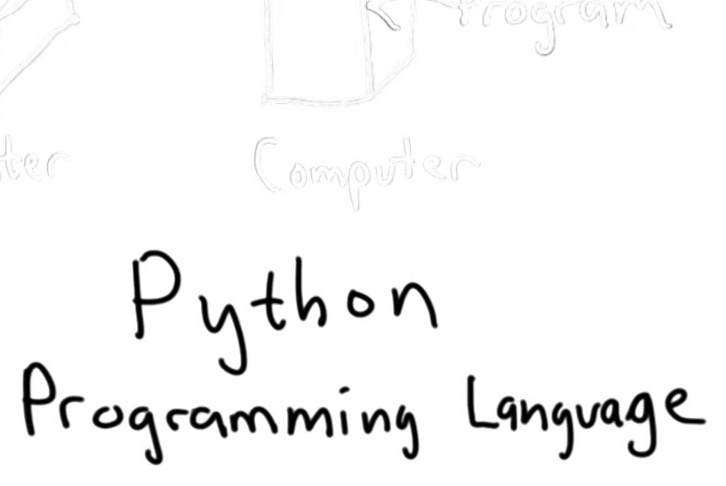 Program
Computer
Python
Programming Language